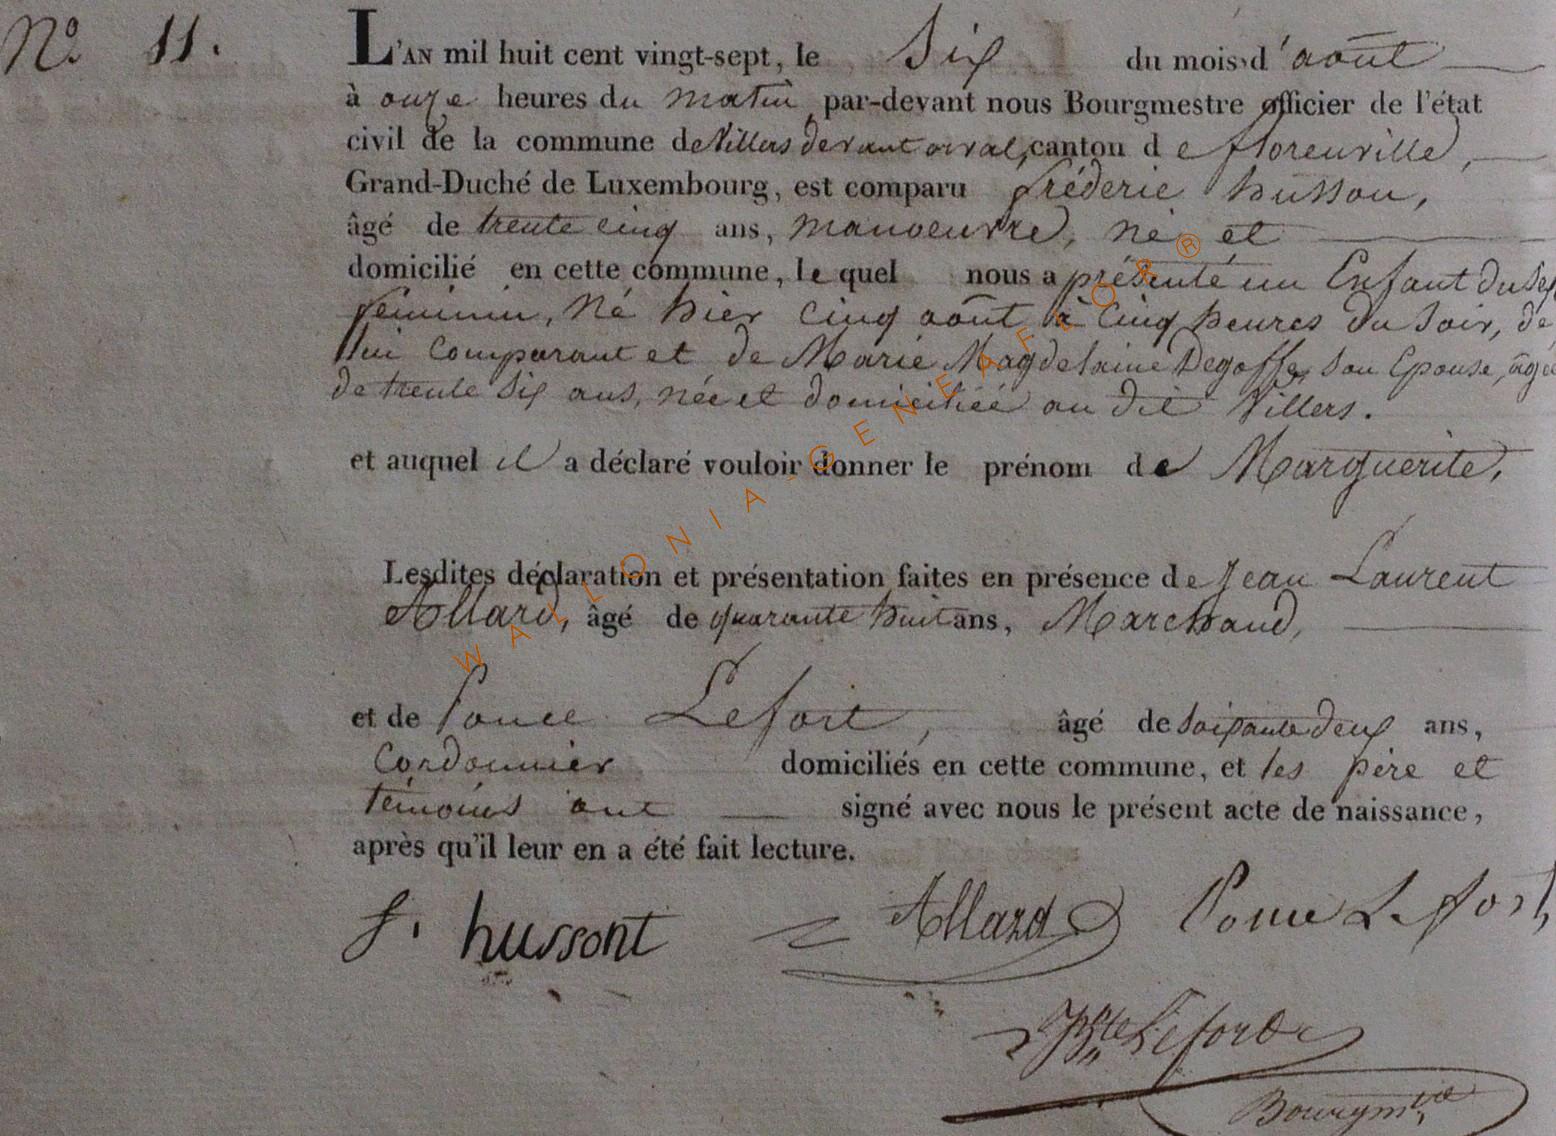 N.o 11.
L'AN mil huit cent vingt-sept, le Six du mois d'août
à onze heures du matin par-devant nous Bourgmestre officier de l'état
civil de la commune de Villers devant orval, canton de florenville,
Grand-Duché de Luxembourg, est comparu fréderic husson,
âgé de trente cinq ans, manoeuvre, né et
domicilié en cette commune, le quel nous a présenté un Enfant du Sex
feminin, né hier cinq août à cinq heures du Soir, de
lui Comparant et de Marie Magdelaine Degoffe, Son Epouse, âgée
de trente Six ans, née et domiciliée au dit Villers.
et auquel il a déclaré vouloir donner le prénom de Marguerite,
Lesdites déclaration et présentation faites en présence de Jean Laurent
Allard, âgé de quarante huit ans, Marchand,
et de Ponce Lefort, âgé de Soixante deux ans,
Cordonnier domiciliés en cette commune, et les père et
témoins ont signé avec nous le présent acte de naissance,
après qu'il leur en a été fait lecture.
f. hussont Allard Ponce Lefort
Bte Lefort
Bourgmtre
WALLONIA-GENEAFLOR®